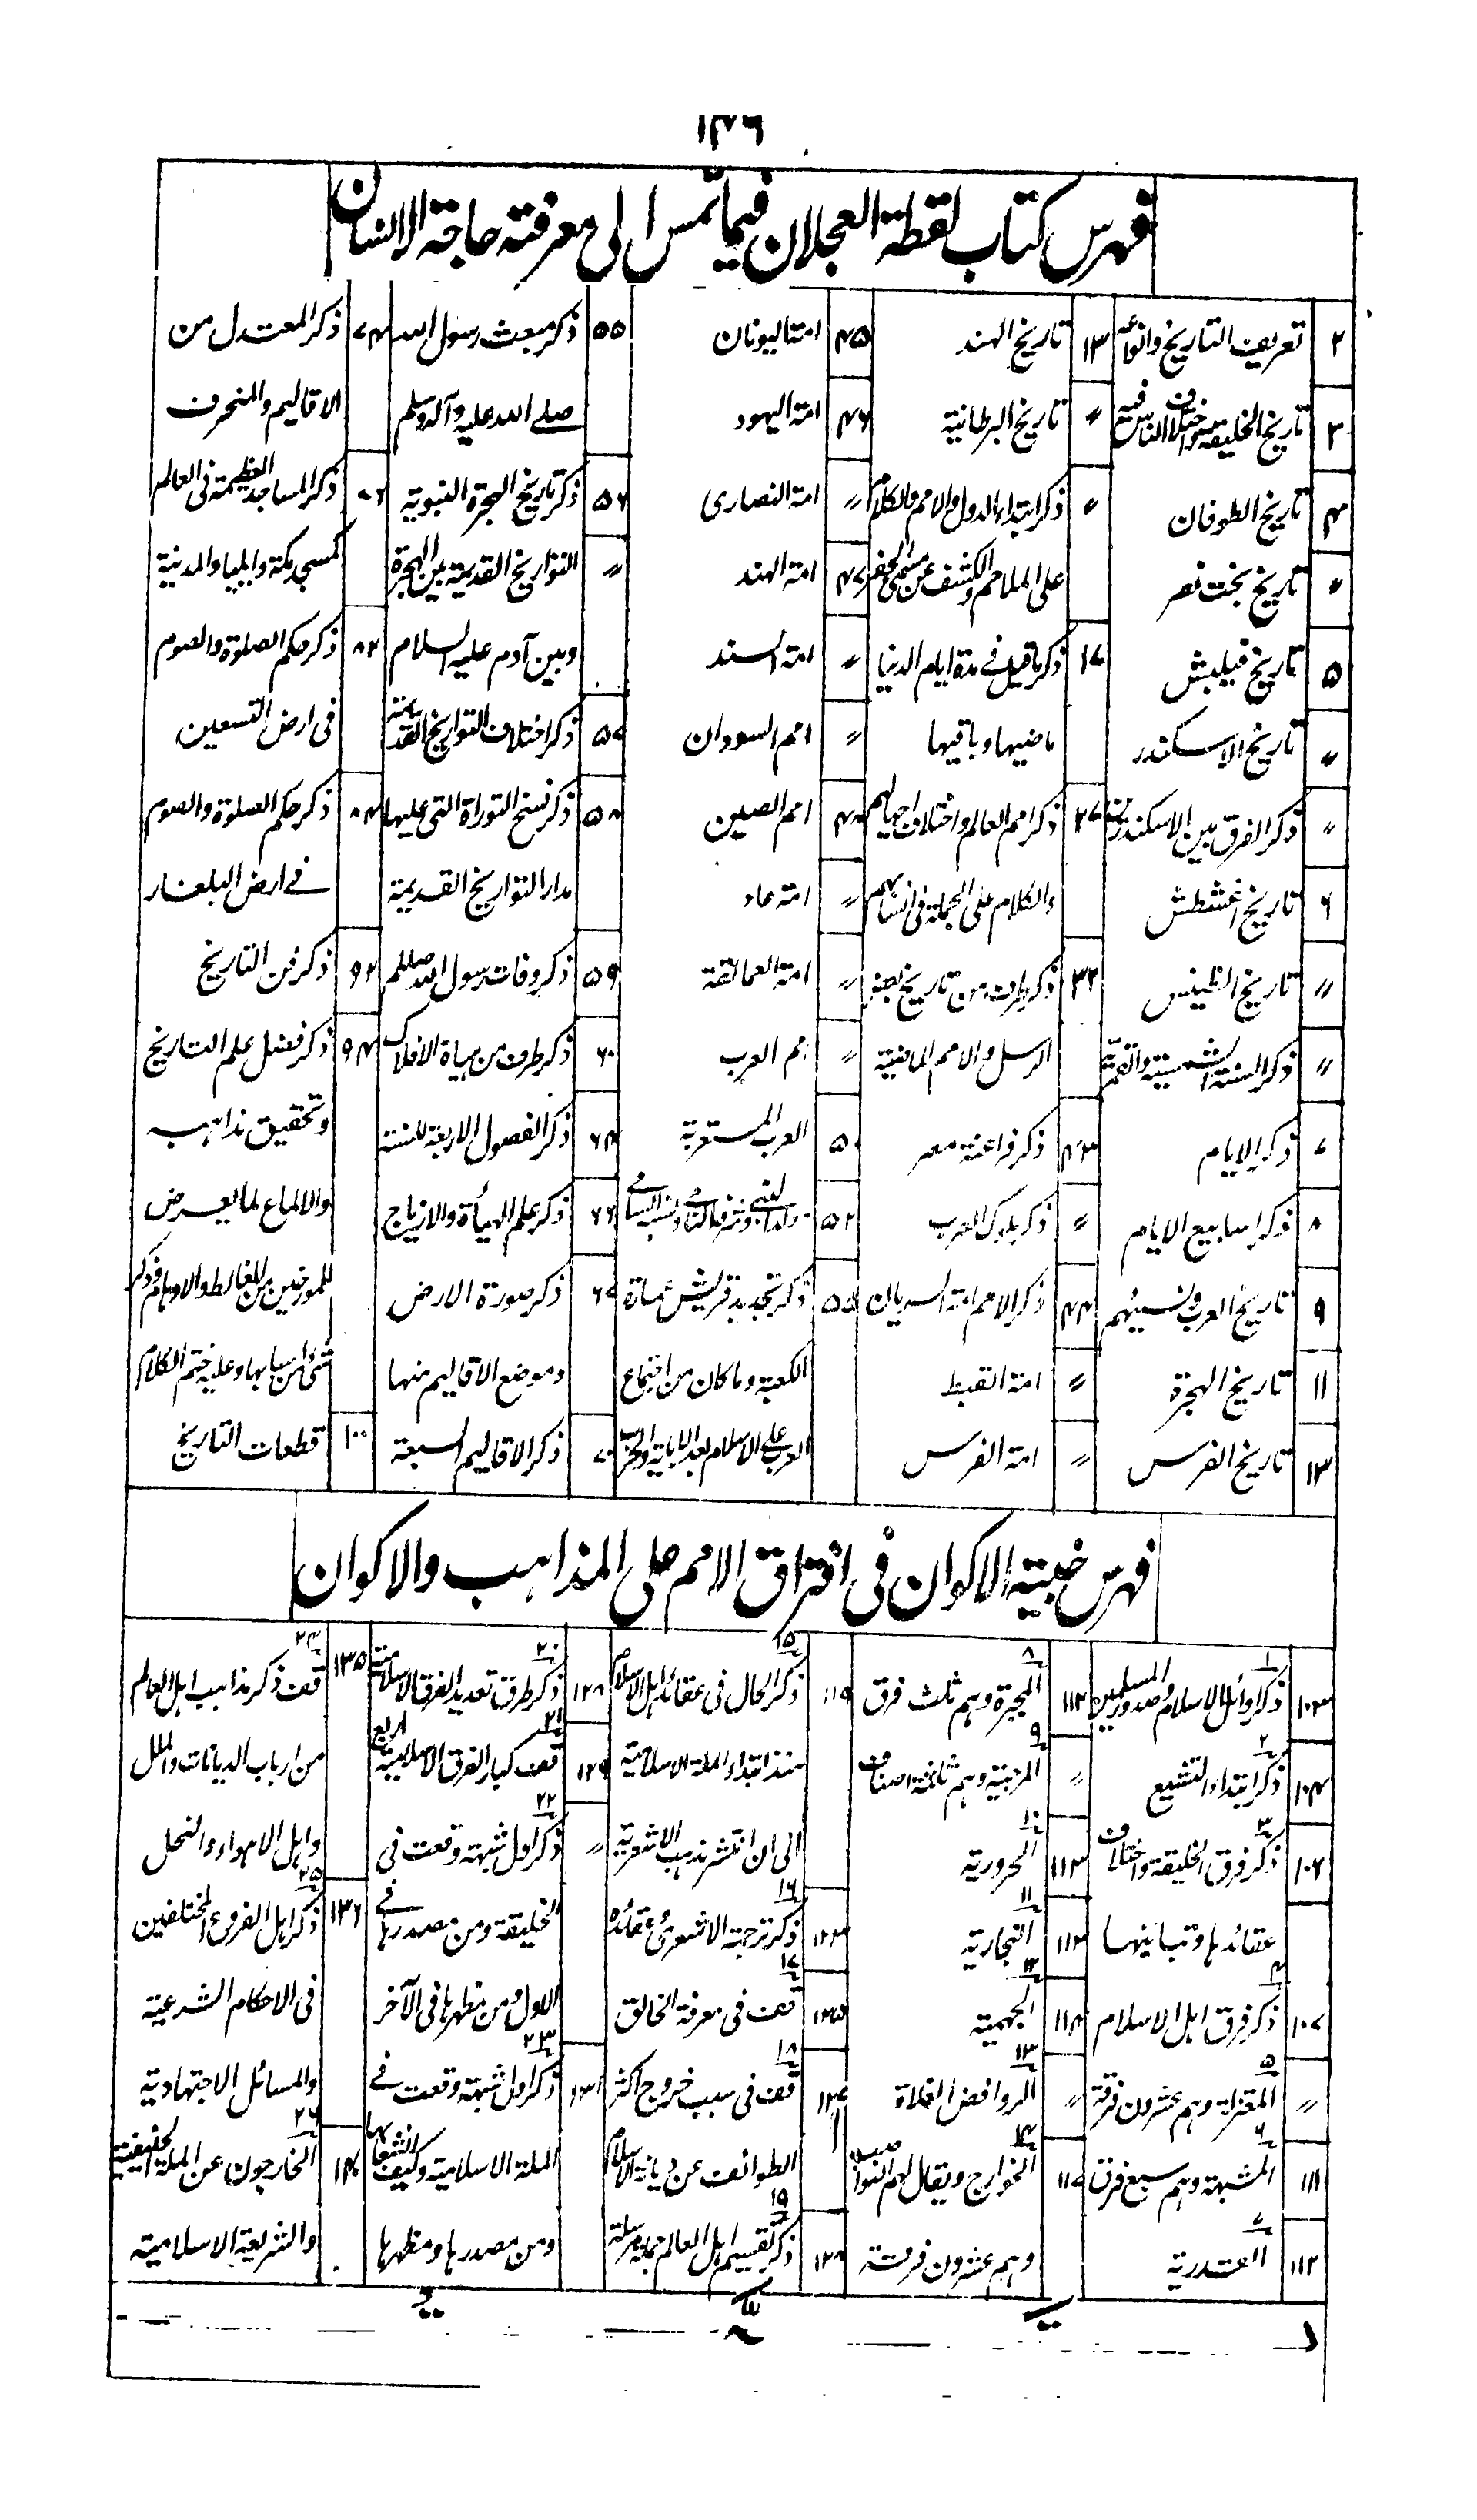 ١٣٦
فهرس كتاب لقطة العجلان فيما تمس الى معرفته حاجة الانسان
٢ تعريف التاريخ وانواعه
٣ تاريخ الخليقة واختلاف الناس فيه
٤ تاريخ الطوفان
〃 تاريخ بخت نصر
٥ تاريخ فيلبش
〃 تاريخ الاسكندر
〃 ذكر الفرق بين الاسكندرين
٦ تاريخ اغشطش
〃 تاريخ انطينس
〃 ذكر السنة الشمسية والقمرية
٧ ذكر الايام
٨ ذكر اسابيع الايام
٩ تاريخ العرب ونسيئهم
١١ تاريخ الهجرة
١٣ تاريخ الفرس
١٣ تاريخ الهند
〃 تاريخ البرطانية
〃 ذكر ابتداء الدول والامم والكلام
على الملاحم والكشف عن مسمى الجفر
١٧ ذكر ما قيل في مدة ايام الدنيا
ماضيها وباقيها
٢٧ ذكر امم العالم واختلاف اجيالهم
والكلام على الجملة فى انسابهم
٣٢ ذكر طرف من تاريخ بعض
الرسل والامم الماضية
٤٣ ذكر فراعنة مصر
〃 ذكر ملوك العرب
٤٤ ذكر الامم امة السريان
〃 امة القبط
〃 امة الفرس
٤٥ امة اليونان
٤٦ امة اليهود
〃 امة النصارى
٤٧ امة الهند
〃 امة السند
〃 امم السودان
٤٨ امم الصين
〃 امة عاد
〃 امة العمالقة
〃 امم العرب
٥٠ العرب المستعربة
٥٥ ذكر تجديد قريش عمارة
الكعبة وما كان من اجتماع
العرب على الاسلام بعد الاباية والحرب
٥٥ ذكر مبعث رسول الله
صلے الله عليه وآله وسلم
٥٦ ذكر تاريخ الهجرة النبوية
〃 التواريخ القديمة بين الهجرة
وبين آدم عليه السلام
٥٧ ذكر اختلاف التواريخ القديمة
٥٨ ذكر نسخ التوراة التى عليها
مدار التواريخ القديمة
٥٩ ذكر وفات رسول الله صللم
٦٠ ذكر طرف من هيأة الافلاك
٦٤ ذكر الفصول الاربعة للسنة
٦٦ ذكر علم الهيأة والازياج
٦٧ ذكر صورة الارض
وموضع الاقاليم منها
٧٠ ذكر الاقاليم السبعة
٧٤ ذكر المعتدل من
الاقاليم والمنحرف
٧٦ ذكر المساجد العظيمة فى العالم
كمسجد مكة وايليا والمدينة
٨٢ ذكر حكم الصلوة والصوم
فى ارض التسعين
٨٤ ذكر حكم الصلوة والصوم
فے ارض البلغار
٩٢ ذكر فن التاريخ
٩٤ ذكر فضل علم التاريخ
وتحقيق مذاهبه
والالماع لما يعرض
للمورخين من المغالط والاوهام وذكر
شئ من اسبابها وعليه ختم الكلام
١٠٠ قطعات التاريخ
فهرس خبيئة الاكوان فى افتراق الامم على المذاهب والاكوان
١٠٣ ١ ذكر اوائل الاسلام وصدور المسلمين
١٠٤ ٢ ذكر ابتداء التشيع
١٠٦ ٣ ذكر فرق الخليقة واختلاف
عقائدها وتباينها
١٠٧ ٤ ذكر فرق اهل الاسلام
〃 ٥ المعتزلة وهم عشرون فرقة
١١١ ٦ المشبهة وهم سبع فرق
١١٢ ٧ القدرية
١١٢ ٨ المجبرة وهم ثلث فرق
〃 ٩ المرجئة وهم ثلثة اصناف
١١٣ ١٠ الحرورية
١١٣ ١١ النجارية
١١٤ ١٢ الجهمية
〃 ١٣ الروافض الغلاة
١١٧ ١٤ الخوارج ويقال لهم النواصب
وهم عشرون فرقة
١١٩ ١٥ ذكر الحال فى عقائد اهل الاسلام
منذ ابتداء الملة الاسلامية
الى ان انتشر مذهب الاشعرية
١٢٣ ١٦ ذكر ترجمة الاشعرى وعقائده
١٢٥ ١٧ قف فى معرفة الخالق
١٢٧ ١٨ قف فى سبب خروج اكثر
الطوائف عن ديانة الاسلام
١٢٨ ١٩ ذكر تقسيم اهل العالم جملة مرسلة
١٢٨ ٢٠ ذكر طرق تعديد الفرق الاسلامية
١٢٩ ٢١ قف كبار الفرق الاسلامية اربع
〃 ٢٢ ذكر اول شبهة وقعت فى
الخليقة ومن مصدرها فے
الاول ومن مظهرها فى الآخر
١٣١ ٢٣ ذكر اول شبهة وقعت فے
الملة الاسلامية وكيف انشعابها
ومن مصدرها ومظهرها
١٣٥ ٢٤ قف ذكر مذاهب اهل العالم
من ارباب الديانات والملل
واهل الاهواء والنحل
١٣٦ ٢٥ ذكر اهل الفروع المختلفين
فى الاحكام الشرعية
والمسائل الاجتهادية
١٤٠ ٢٦ الخارجون عن الملة الحنيفية
والشريعة الاسلامية